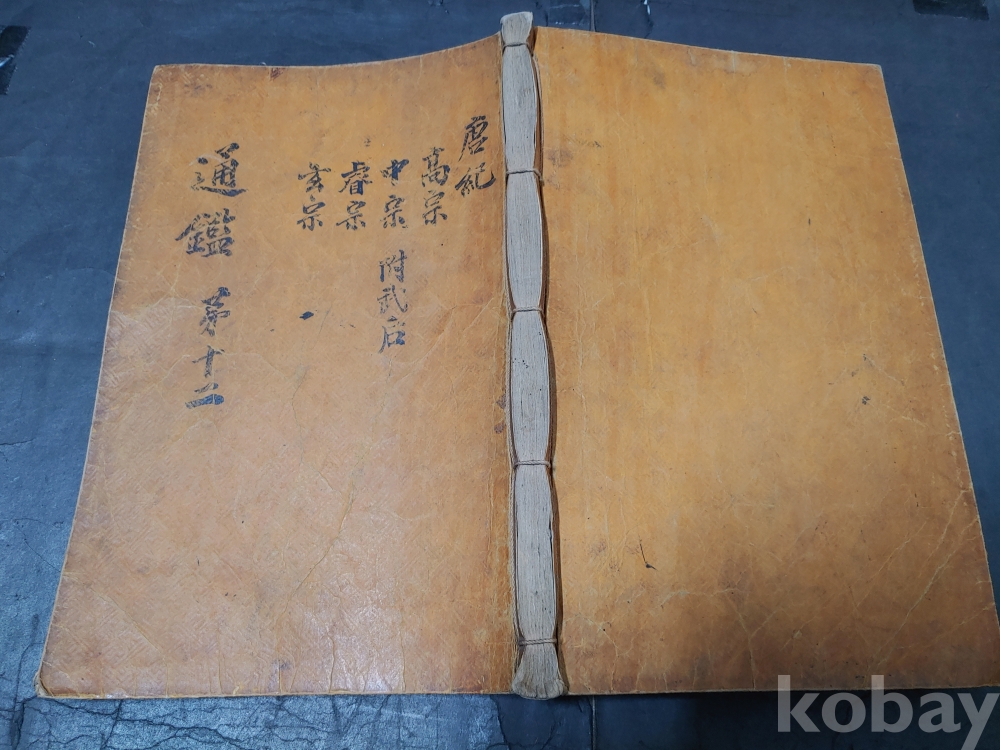 唐紀
高宗
中宗 附武后
睿宗
玄宗
通鑑 苐十二
kobay